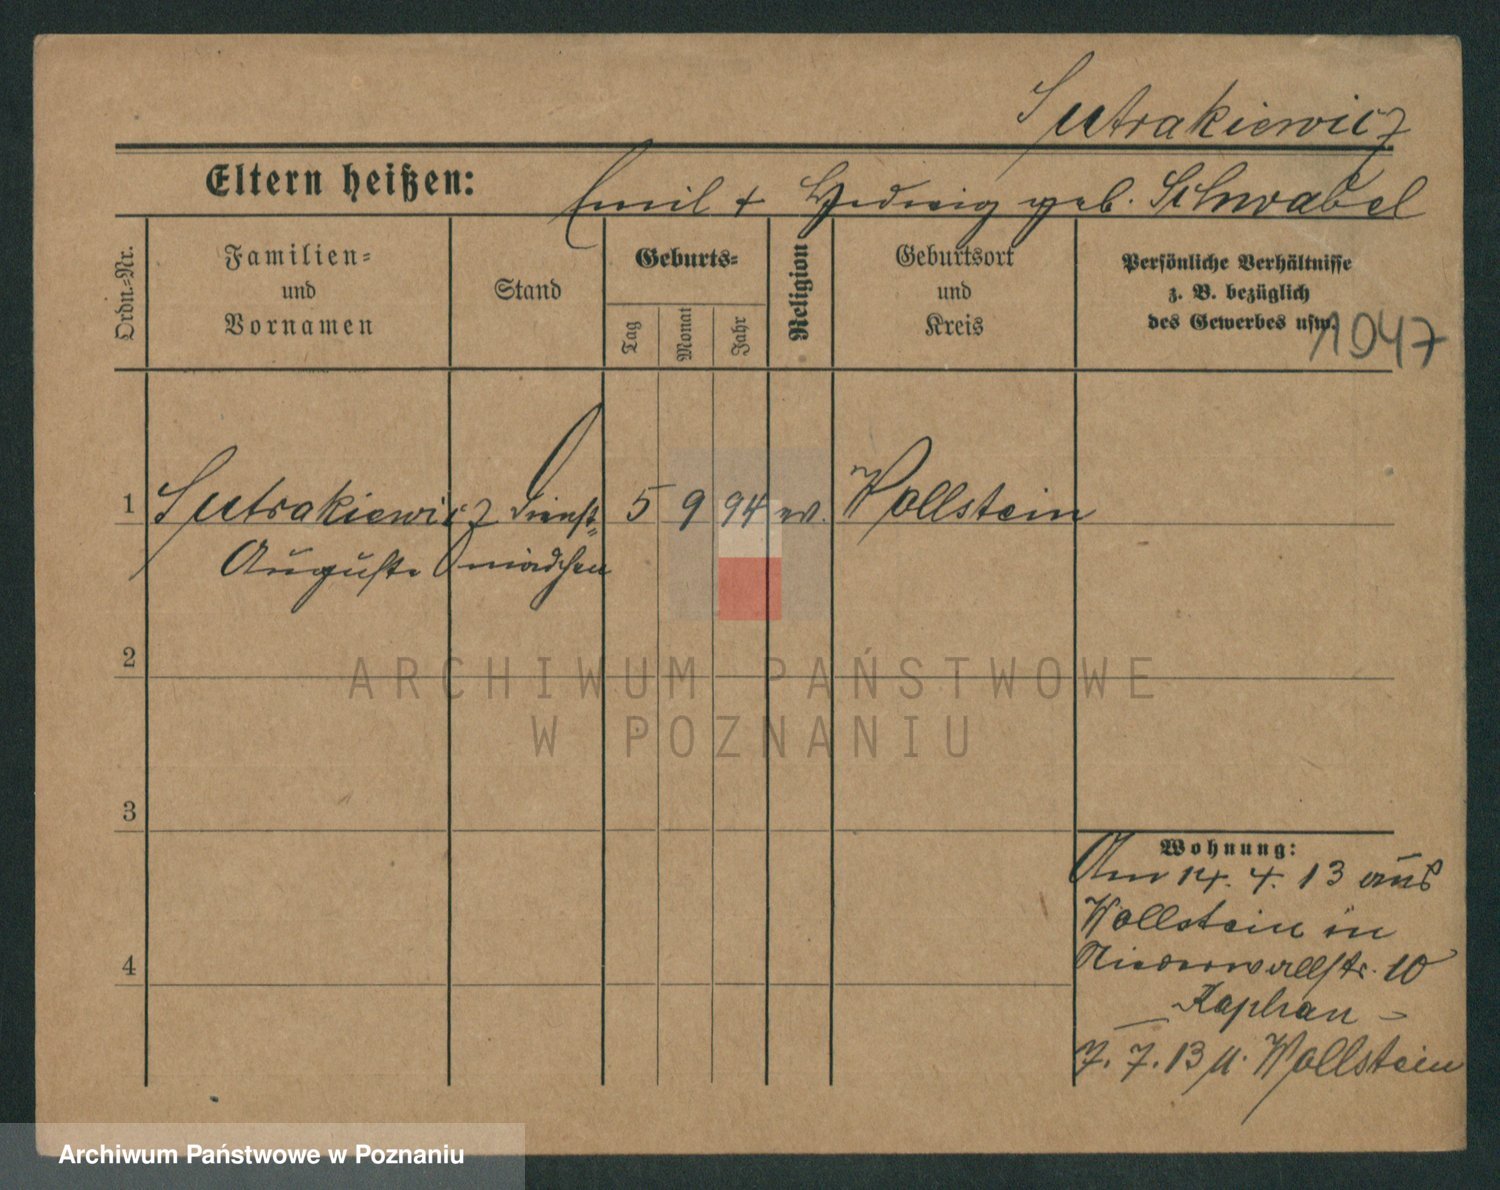 Sutrakiewicz
Eltern heißen: Emil + Hedwig geb. Schwabel
Ordn.-Nr.
Familien-
und
Vornamen
Stand
Geburts-
Tag
Monat
Jahr
Religion
Geburtsort
und
Kreis
Persönliche Verhältnisse
z. B. bezüglich
des Gewerbes usw.
1947
1 Sutrakiewicz Dienst- 5 9 94 ev. Wollstein
Auguste mädchen
2
3
4
Wohnung:
Am 14. 4. 13 aus
Wollstein in
Niederwallstr. 10
Kaphan -
7. 7. 13 n. Wollstein
ARCHIWUM PAŃSTWOWE
W POZNANIU
Archiwum Państwowe w Poznaniu